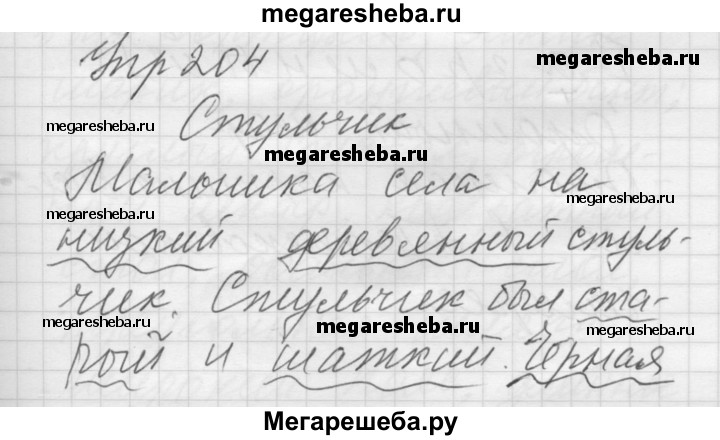 megaresheba.ru
Упр 204
megaresheba.ru
megaresheba.ru
Стульчик
megaresheba.ru
Малышка села на
megaresheba.ru
megaresheba.ru
низкий деревянный стуль-
чик. Стульчик был ста-
megaresheba.ru
megaresheba.ru
megaresheba.ru
рый и шаткий. Чёрная
Мегарешеба.ру